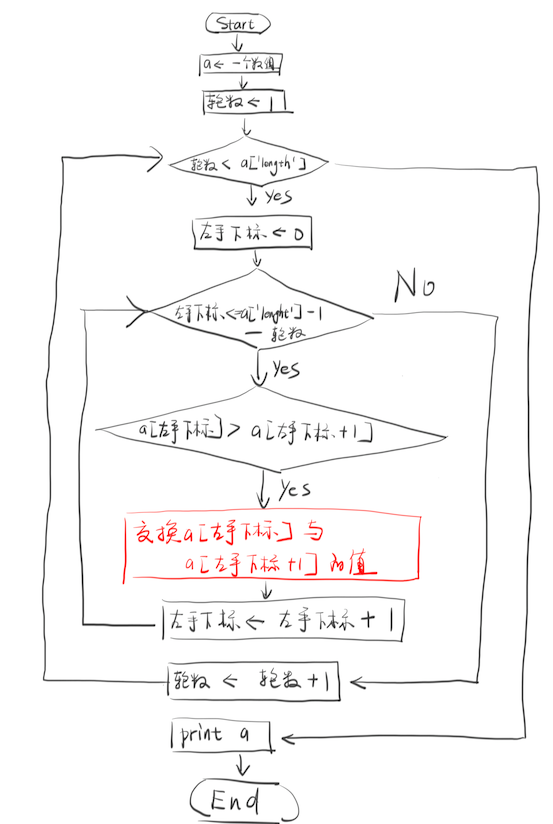 Start
a ← 一个数组
轮数 ← 1
轮数 < a['length']
Yes
左手下标 ← 0
No
左手下标 <= a['lenght'] - 1
- 轮数
Yes
a[左手下标] > a[左手下标+1]
Yes
交换a[左手下标] 与
a[左手下标+1] 的值
左手下标 ← 左手下标 + 1
轮数 ← 轮数+1
print a
End